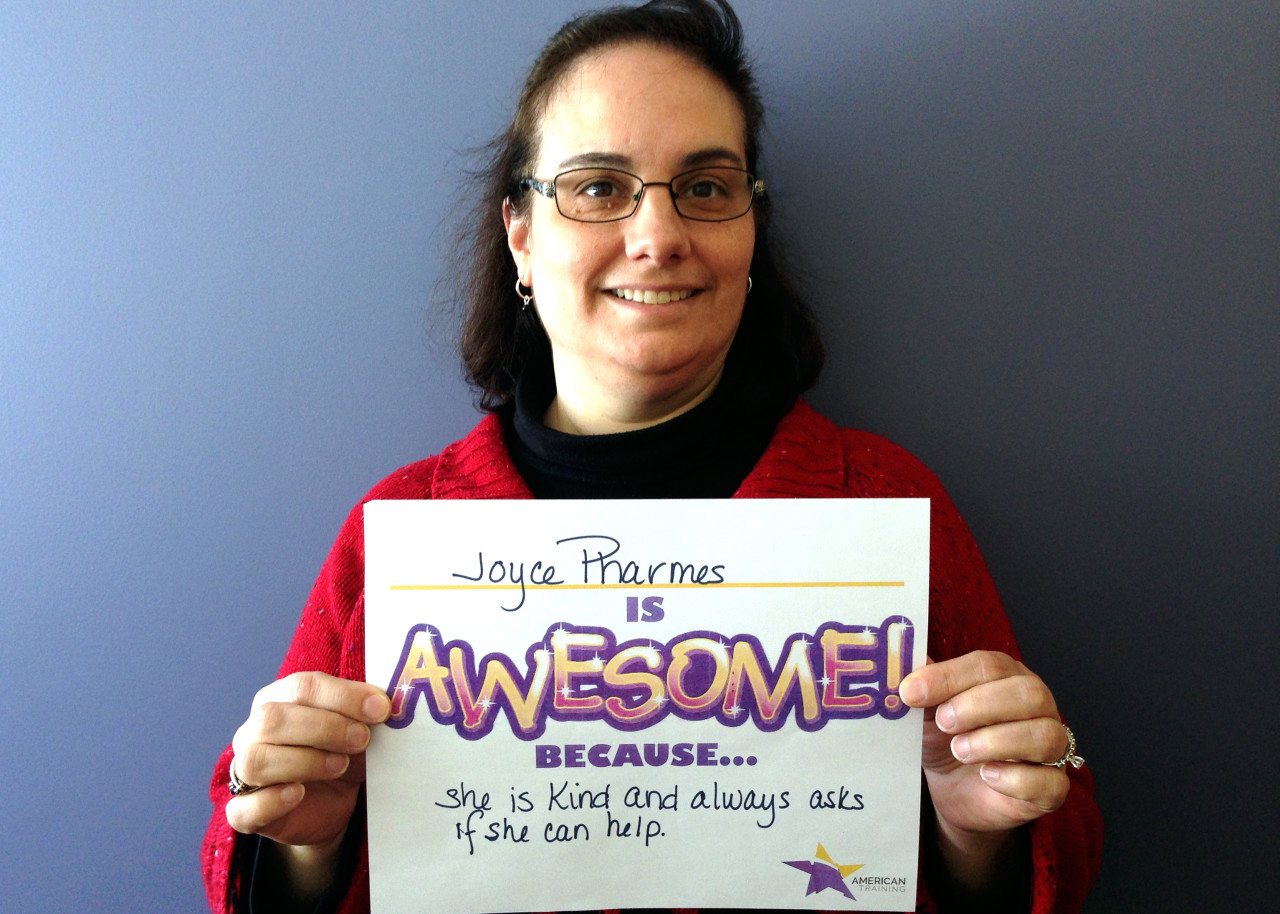 Joyce Pharmes
IS
AWESOME!
BECAUSE...
she is Kind and always asks
if she can help.
AMERICAN
TRAINING